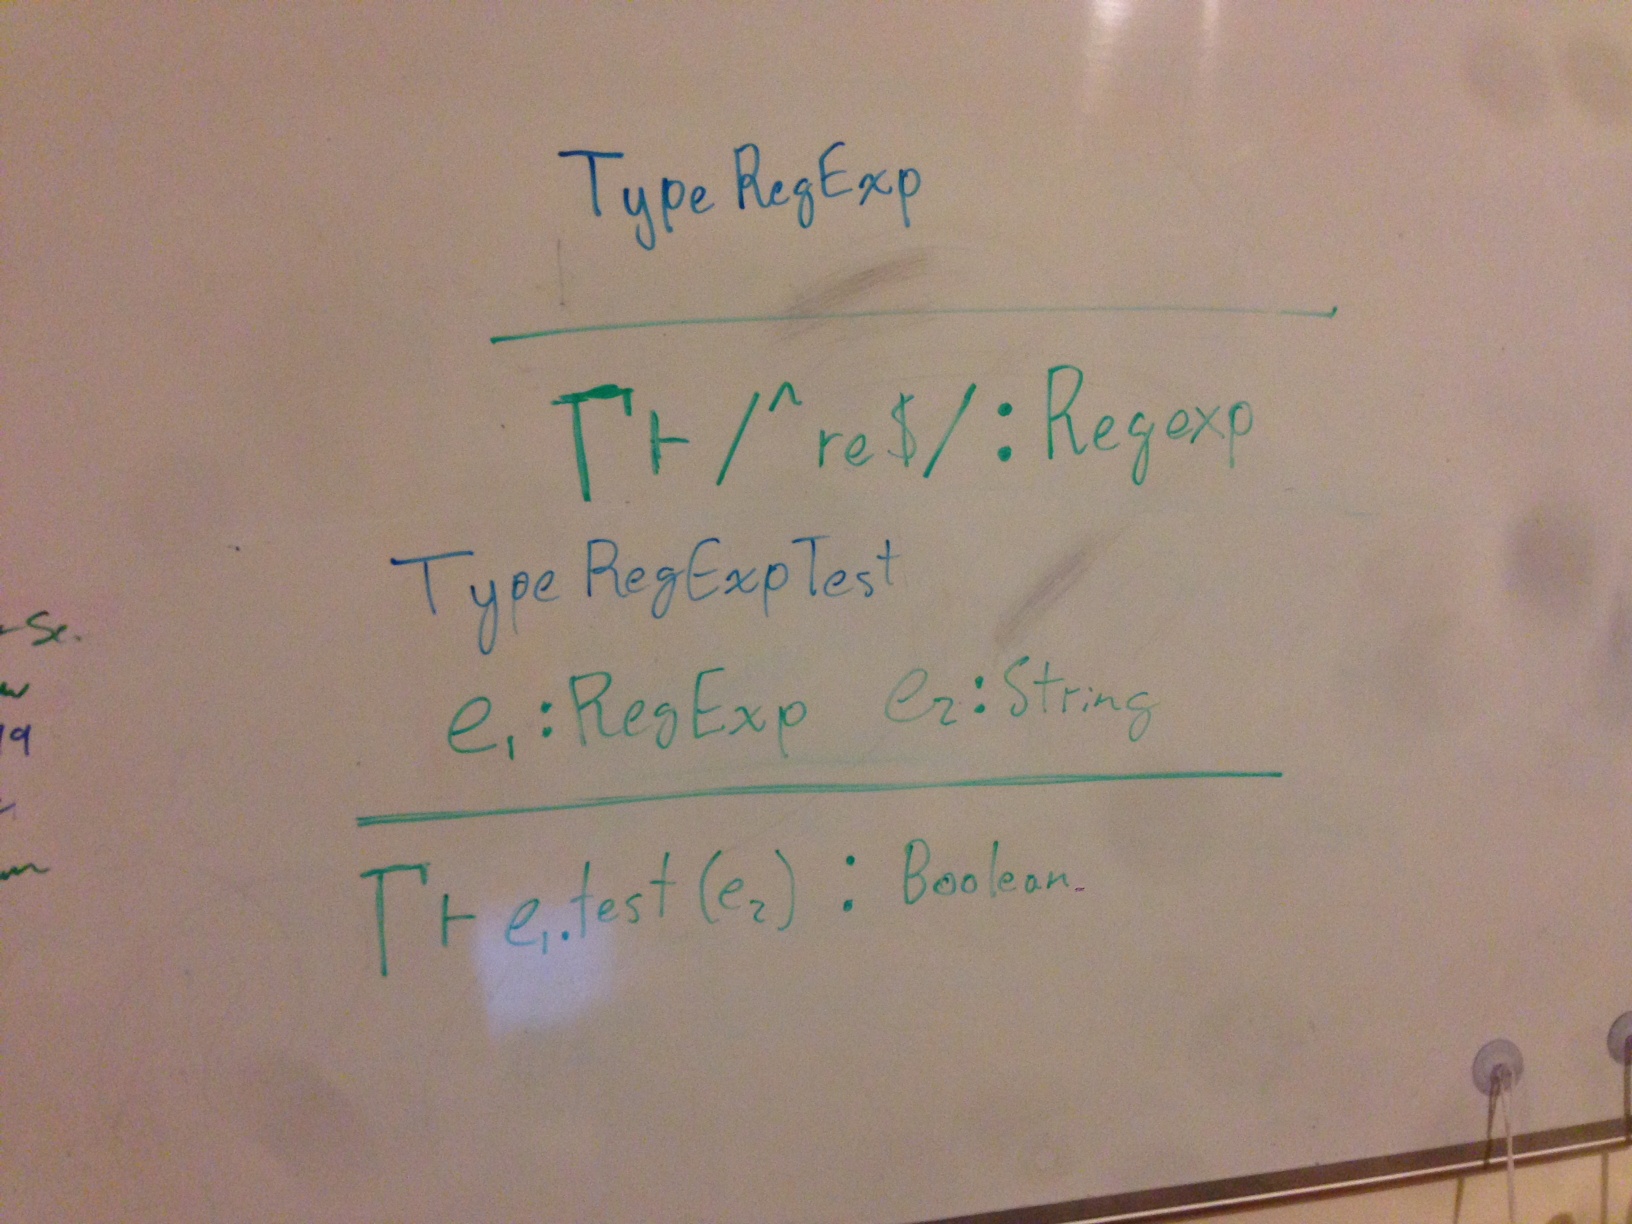 Type RegExp
Γ ⊢ /^re$/ : Regexp
Type RegExpTest
e₁ : RegExp e₂ : String
Γ ⊢ e₁.test(e₂) : Boolean
-Sc.
19